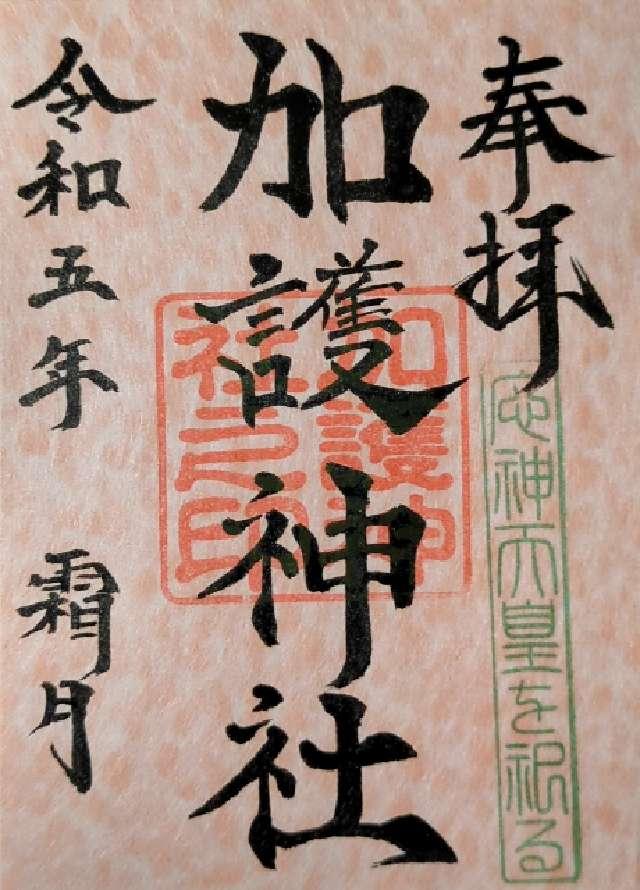 奉拝
応神天皇を祀る
加護神社
加護神
社之印
令和五年 霜月